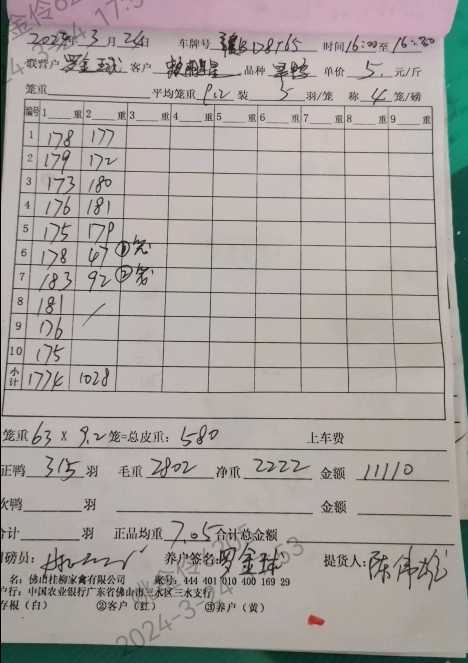 2024年 3 月 24日 车牌号 178165 时间16:00至16:30
联营户 罗金球 客户 品种 单价 5. 元/斤
笼重 平均笼重 9.2 装 5 羽/笼 称 4 笼/磅
编号 1 重 2 重 3 重 4 重 5 重 6 重 7 重 8 重 9 重
1 178 177
2 179 172
3 173 180
4 176 181
5 175 179
6 178 47 ①笼
7 183 92 ②笼
8 181 /
9 176
10 175
小计 1774 1028
笼重 63 X 9.2 笼=总皮重: 580 上车费
正鸭 315 羽 毛重 2802 净重 2222 金额 11110
次鸭 羽 金额
合计 羽 正品均重 7.05 合计总金额
司磅员: 养户签名: 罗金球 提货人: 陈伟龙
名: 佛山桂柳家禽有限公司 账号: 444 401 010 400 169 29
户行: 中国农业银行广东省佛山市三水区三水支行
存根 (白) ②客户 (红) ③养户 (黄)